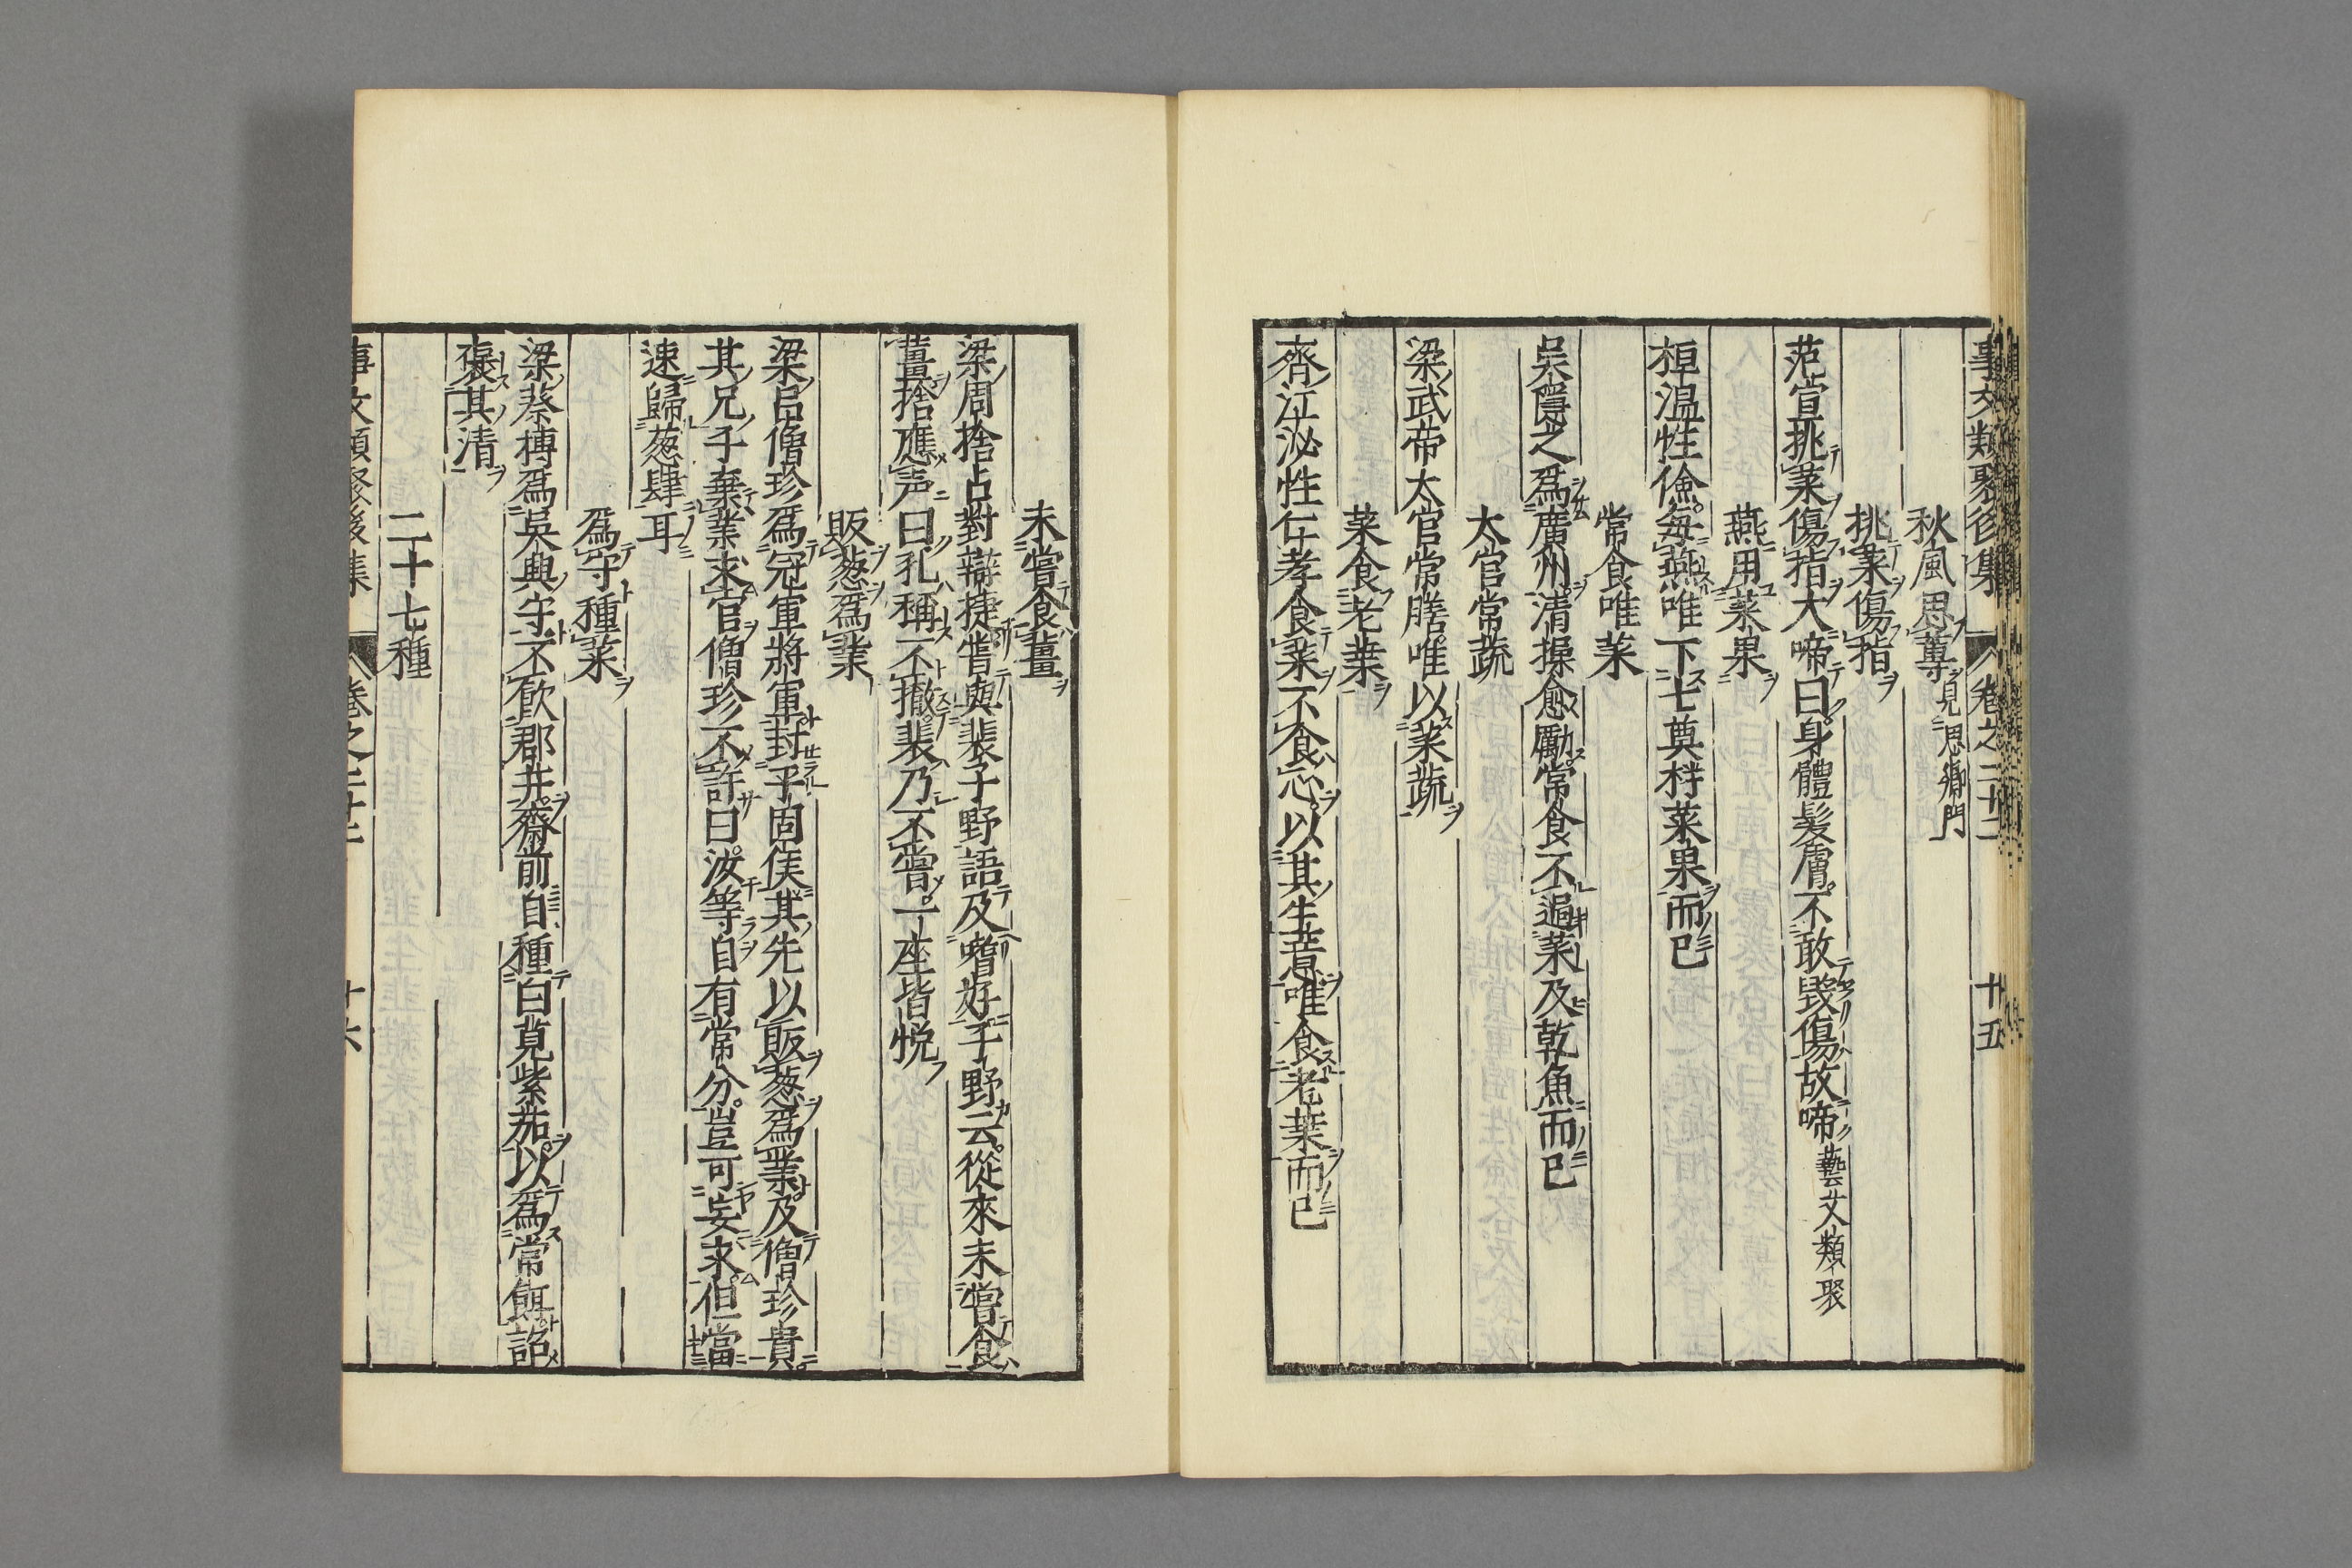 事文類聚後集 卷之二十二 十五
秋風思蓴見思鄉門
挑菜傷指
范宣挑菜傷指大啼曰身體髮膚不敢毀傷故啼藝文類聚
燕用菜果
桓温性儉每燕唯下七奠柈菜果而已
常食唯菜
吳隱之爲廣州清操愈勵常食不過菜及乾魚而已
太官常蔬
梁武帝太官常膳唯以菜蔬
菜食老葉
齊江泌性仁孝食菜不食心以其生意唯食老葉而已
未嘗食薑
梁周捨占對辯捷嘗與裴子野語及嗜好子野云從來未嘗食
薑捨應声曰孔稱不撤裴乃不嘗一座皆悦
販葱爲業
梁呂僧珍爲冠軍將軍封平固侯其先以販葱爲業及僧珍貴
其兄子棄業求官僧珍不許曰汝等自有常分豈可妄求但當
速歸葱肆耳
爲守種菜
梁蔡撙爲吳興守不飲郡井齋前自種白莧紫茄以爲常餌詔
褒其清
二十七種
事文類聚後集 卷之二十二 十六